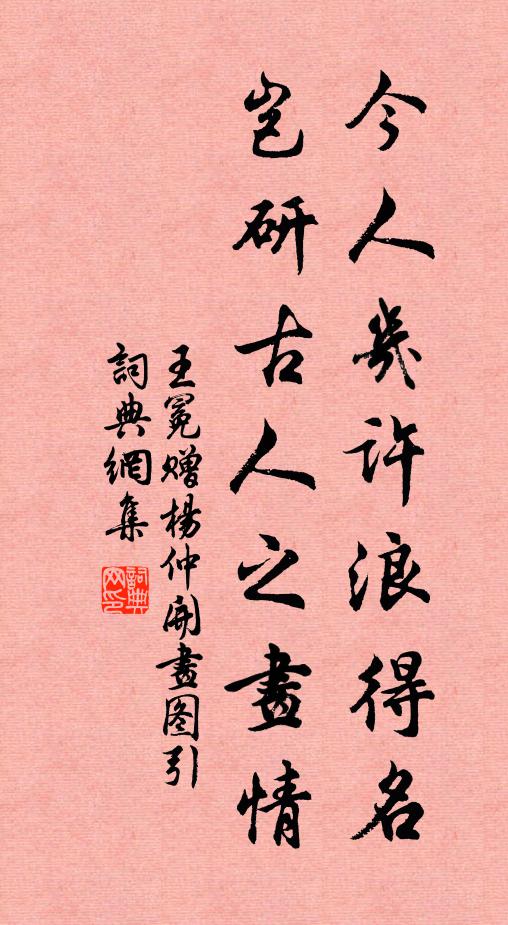 今人几許浪得名
岂研古人之畫情
王冕赠楊仲開畫图引
詞典網集
詞典网印